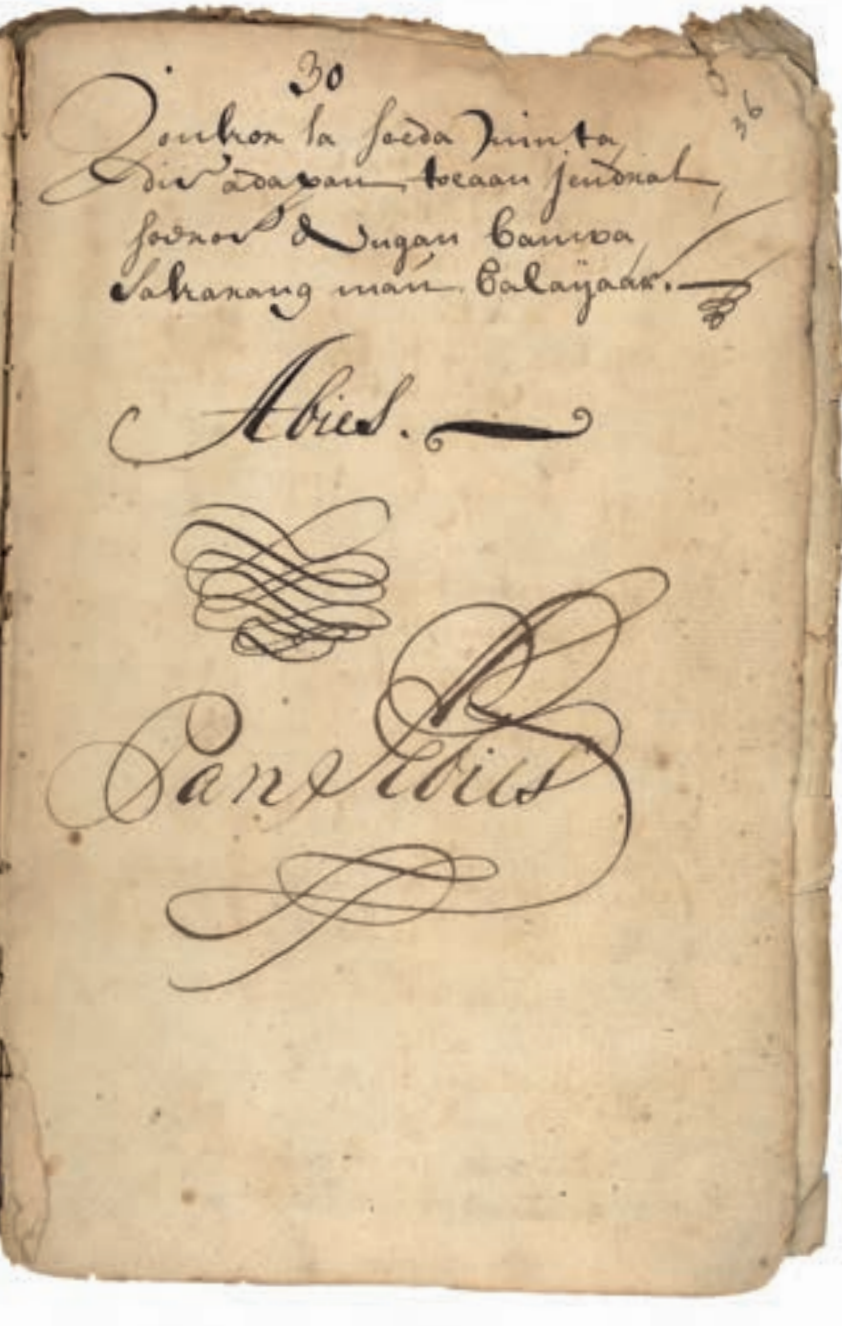 30
36
Jonker la soeda Minta,
di adapan toeaan jendral,
soeroe dengan bauwa,
Sakarang mau balayaar.
Abies.
Pan Abies